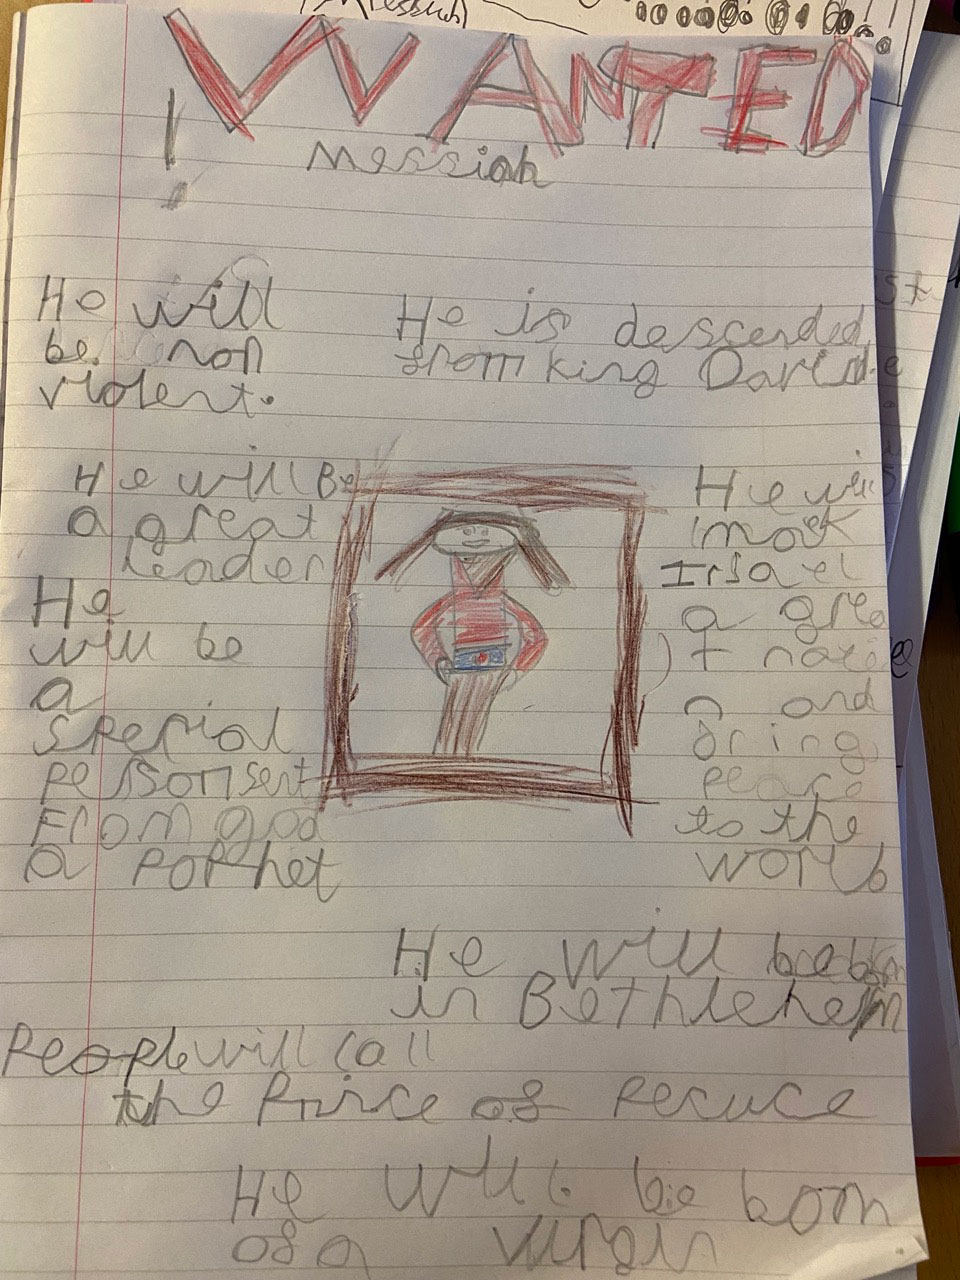 WANTED
!
Messiah
He will
be non
violent.
He is descended
from king David.
He will Be
a great
leader
He will
mack
Irsael
a grea
t natio
n and
bring
peace
to the
worlb
He
will be
a
special
person sent
From god
a Pophet
He will be born
in Bethlehem
People will call
the Prince of Pecuce
He will be born
of a virgin